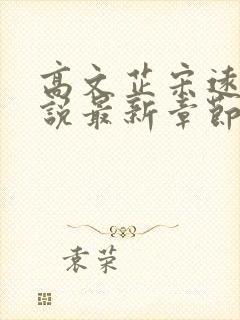 高文芷宋速
說最新章節
袁荣